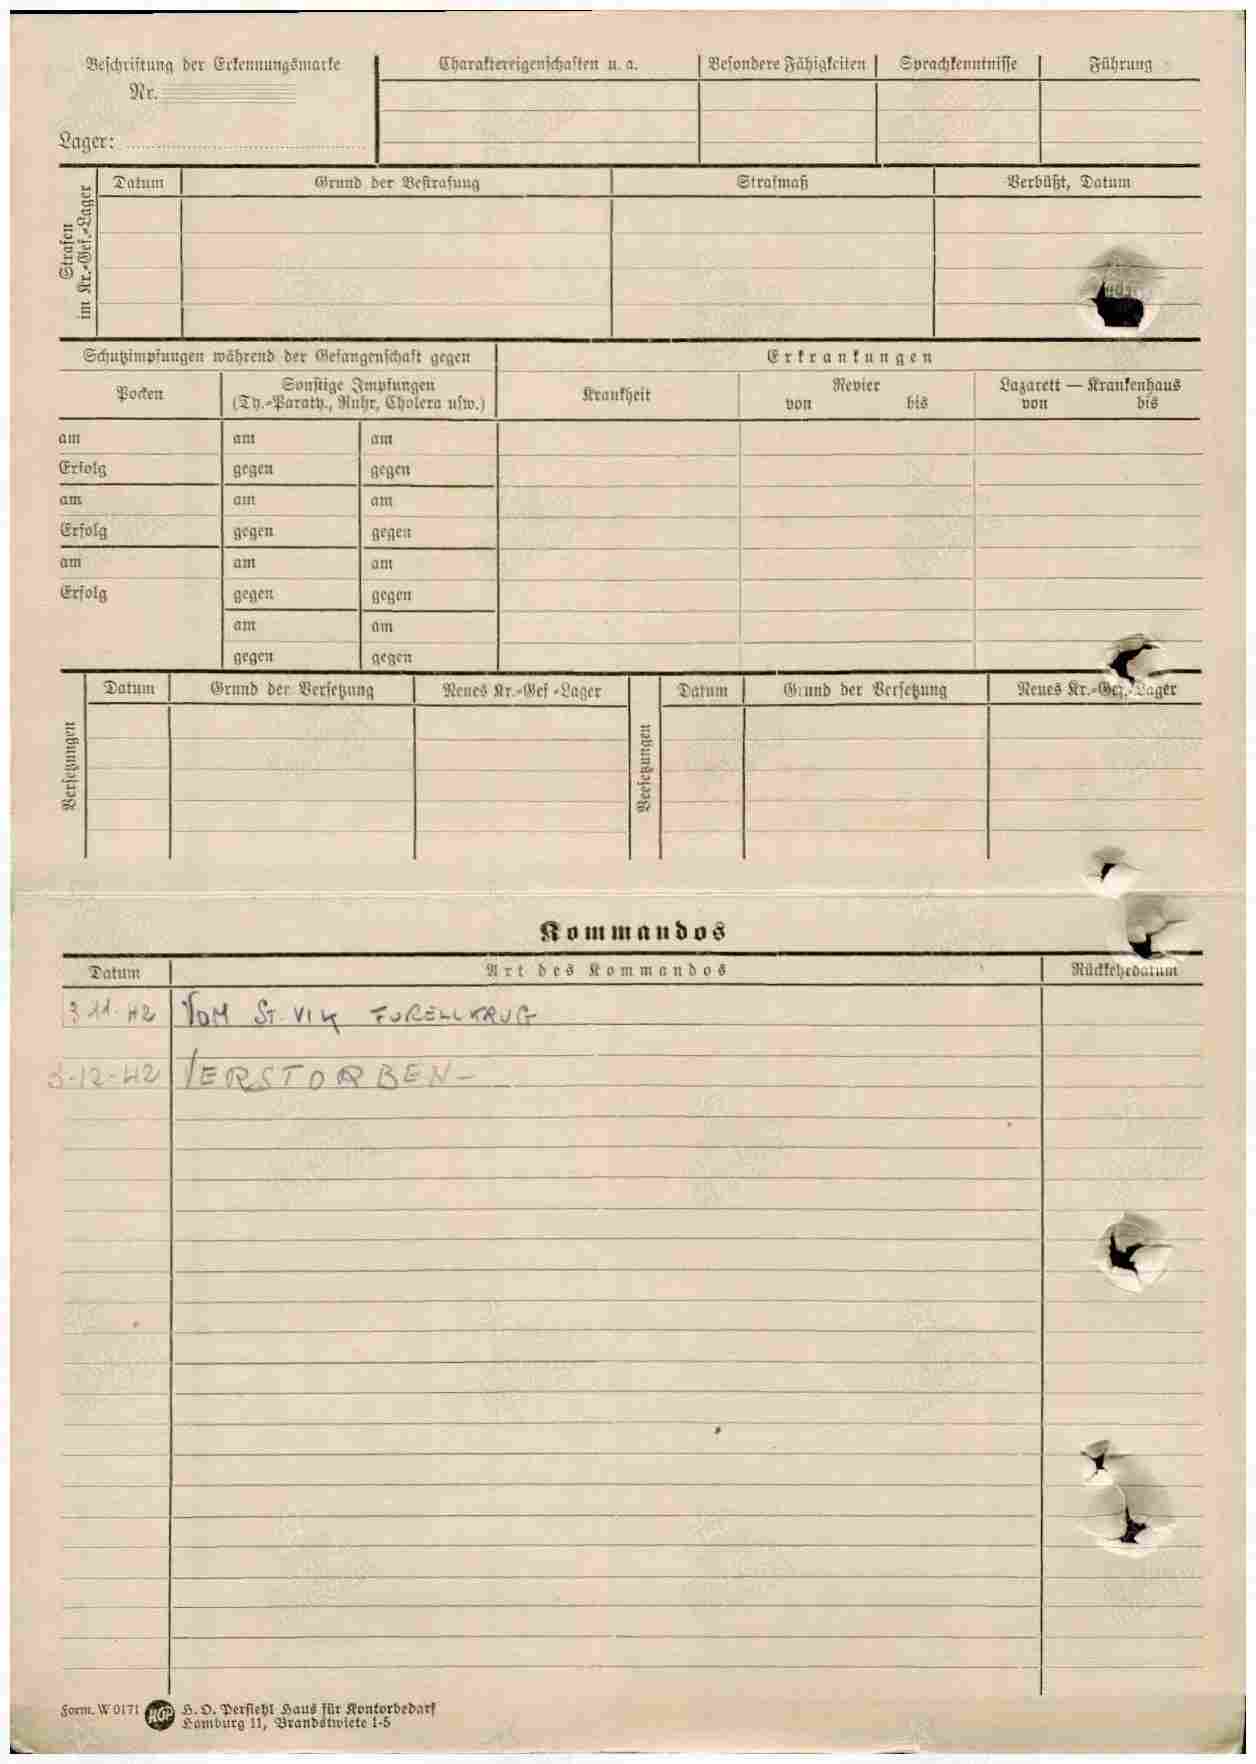 Beschriftung der Erkennungsmarke
Nr.
Lager:
Charaktereigenschaften u. a.
Besondere Fähigkeiten
Sprachkenntnisse
Führung
Strafen
im Kr.-Gef.-Lager
Datum
Grund der Bestrafung
Strafmaß
Verbüßt, Datum
Schutzimpfungen während der Gefangenschaft gegen
Erkrankungen
Pocken
Sonstige Impfungen
(Ty.-Paraty., Ruhr, Cholera usw.)
Krankheit
Revier
von bis
Lazarett — Krankenhaus
von bis
am am am
Erfolg gegen gegen
am am am
Erfolg gegen gegen
am am am
Erfolg gegen gegen
am am
gegen gegen
Versetzungen
Datum Grund der Versetzung Neues Kr.-Gef.-Lager
Versetzungen
Datum Grund der Versetzung Neues Kr.-Gef.-Lager
Kommandos
Datum Art des Kommandos Rückkehrdatum
3 11. 42 VOM ST. VIK
3-12-42 VERSTORBEN-
Form. W 0171 HOP H. O. Persiehl Haus für Kontorbedarf
Hamburg 11, Brandstwiete 1-5